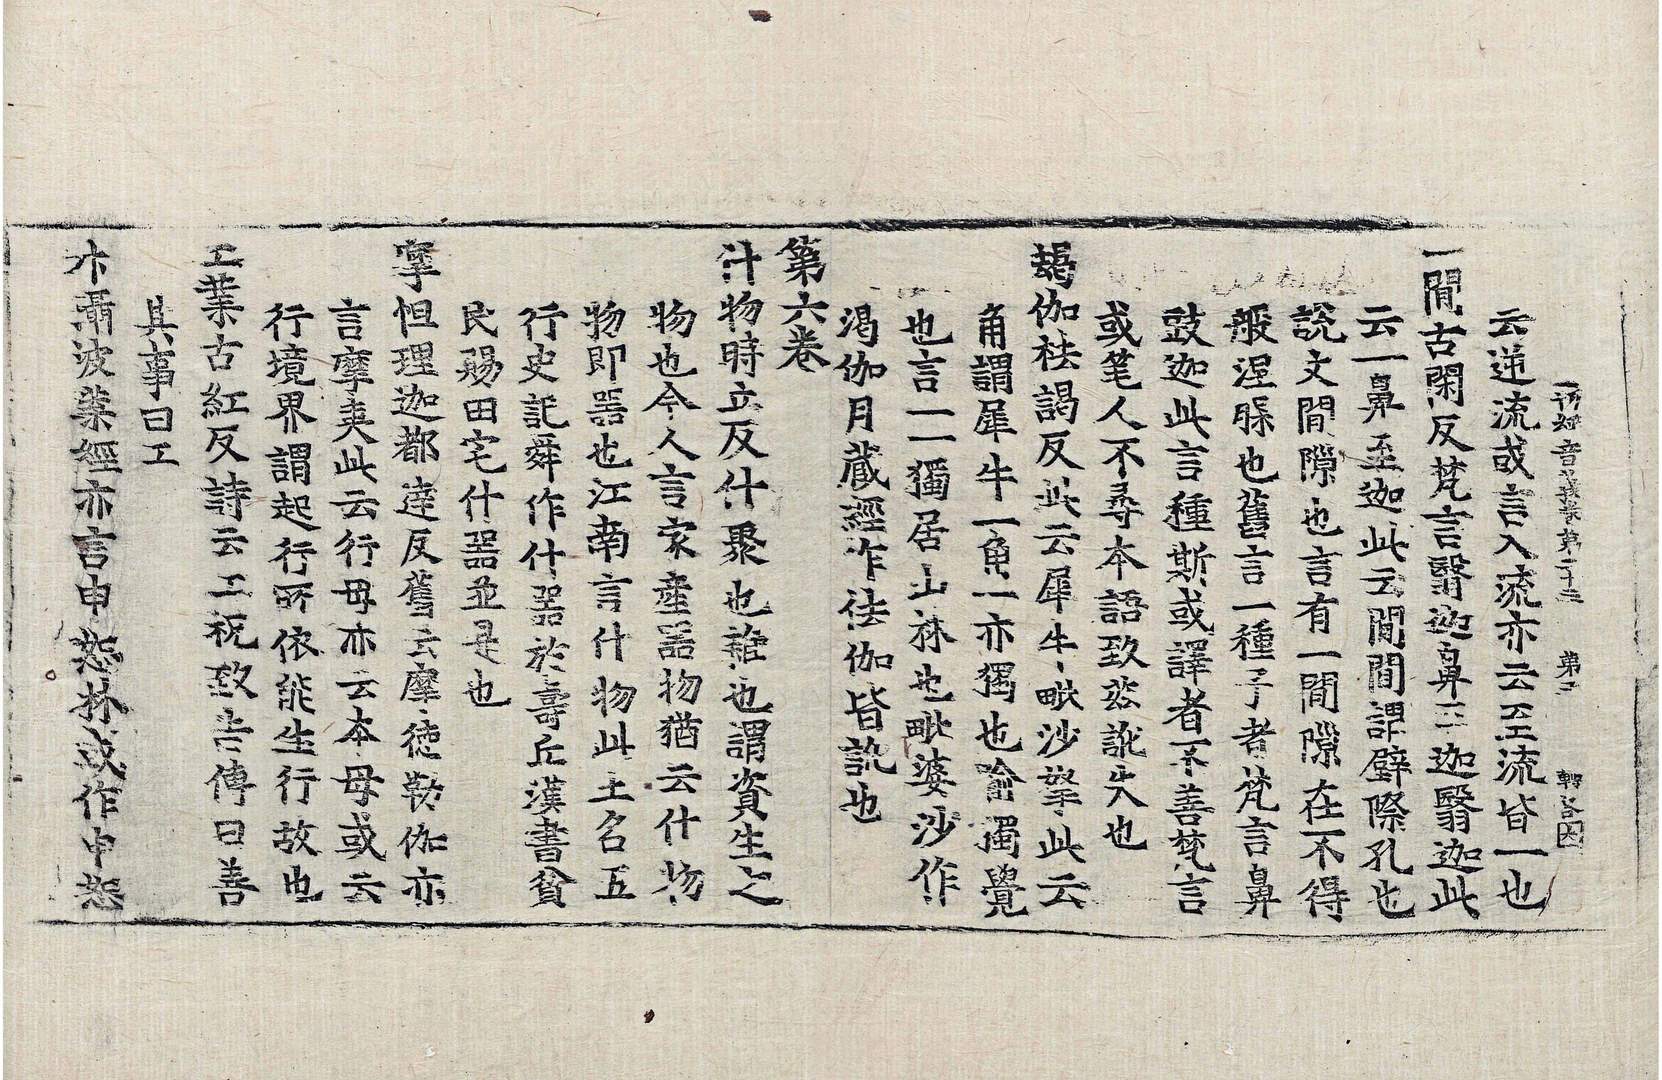 音義 第二十三 第三
云逆流或言入流亦云至流皆一也
一閒古閑反梵言翳迦鼻至迦翳迦此
云一鼻至迦此云閒閒謂壁際孔也
說文閒隙也言有一閒隙在不得
般涅槃也舊言一種子者梵言鼻
豉迦此言種斯或譯者不善梵言
或筆人不尋本語致茲訛失也
朅伽袪謁反此云犀牛毗沙拏此云
角謂犀牛一角一亦獨也喻獨覺
也言一一獨居山林也毗婆沙作
渴伽月藏經作佉伽皆訛也
第六卷
什物時立反什聚也雜也謂資生之
物也今人言家產器物猶云什物
物即器也江南言什物此土名五
行史記舜作什器於壽丘漢書貧
民賜田宅什器並是也
摩怛理迦都達反舊云摩德勒伽亦
言摩夷此云行母亦云本母或云
行境界謂起行所依能生行故也
工業古紅反詩云工祝致告傳曰善
其事曰工
波葉經亦言申恕林或作申恕